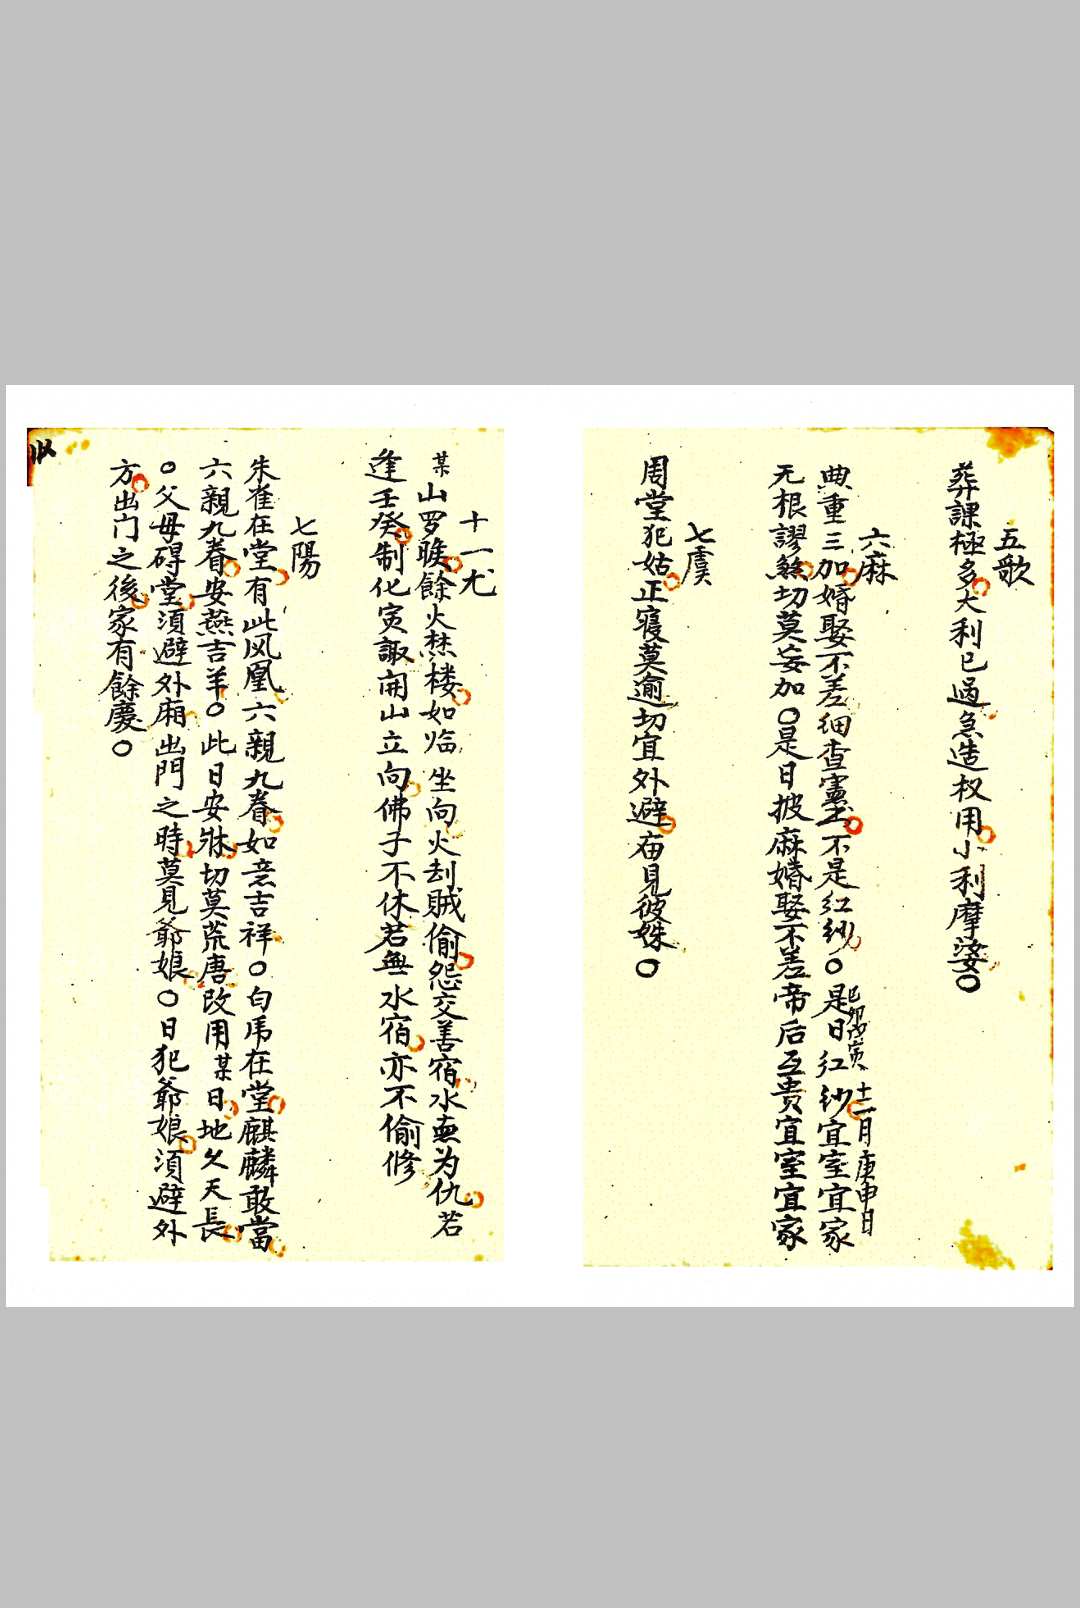 五歌
葬課極多大利已過急造权用小利摩婆〇
六麻
典重三加婚娶不差细查憲書不是红紗〇是日红紗宜室宜家
已卯戊寅 十二月庚申日
无根謬煞切莫妄加〇是日披麻婚娶不差帝后互贵宜室宜家
七虞
周堂犯姑正寝莫逾切宜外避毋見彼姝〇
十一尤
某山罗睺餘火焚楼如临坐向火刦賊偷怨交善宿水無为仇若
逢壬癸制化寅諏開山立向佛子不休若無水宿亦不偷修
七陽
朱雀在堂有此凤凰六親九眷如意吉祥〇白虎在堂麒麟敢當
六親九眷安燕吉羊〇此日安牀切莫荒唐改用某日地久天長
〇父母碍堂須避外廂出門之時莫見爺娘〇日犯爺娘須避外
方出门之後家有餘慶〇